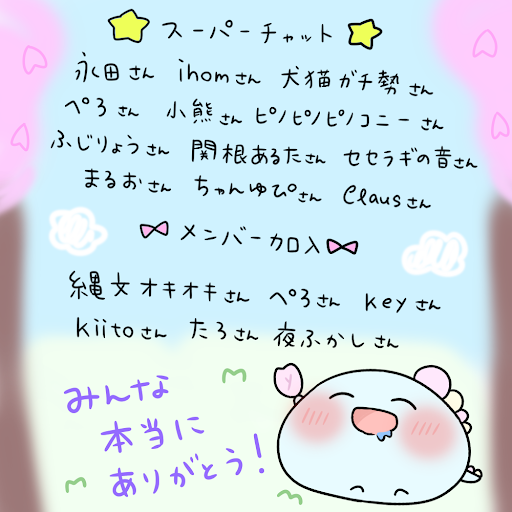 スーパーチャット
永田さん ihomさん 犬猫ガチ勢さん
ぺろさん 小熊さん ピノピノピノコニーさん
ふじりょうさん 関根あるたさん セセラギの音さん
まるおさん ちゃんゆぴさん Clausさん
メンバー加入
縄文オキオキさん ぺろさん keyさん
kiitoさん たろさん 夜ふかしさん
みんな
本当に
ありがとう!